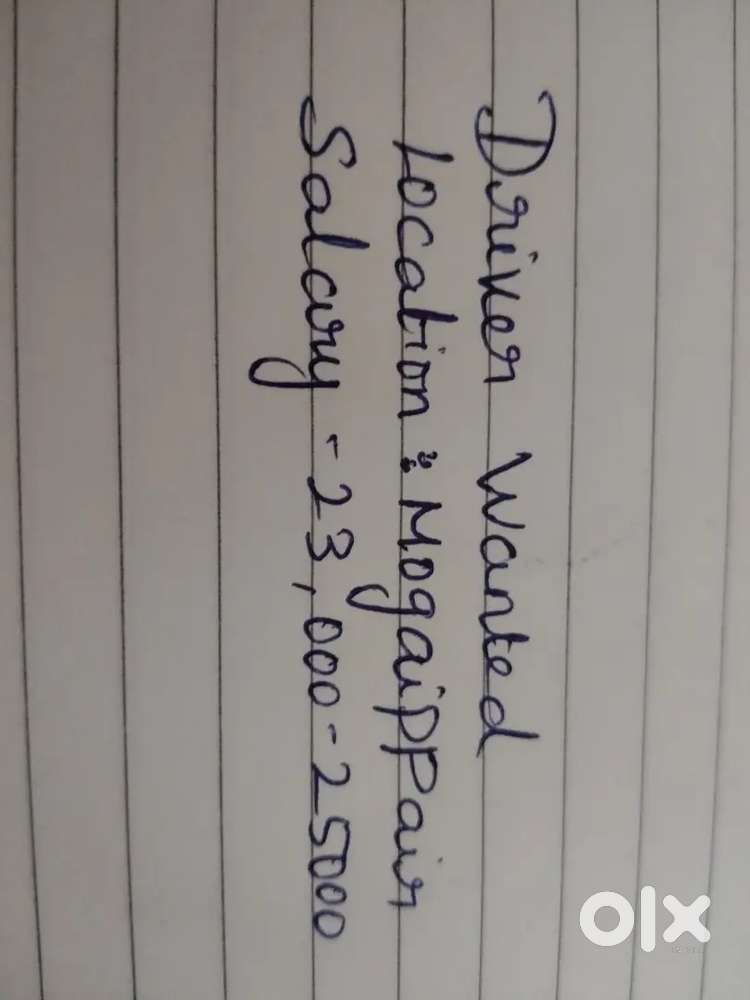 Driver Wanted
Location : Mogaippair
Salary - 23,000 - 25000
olx